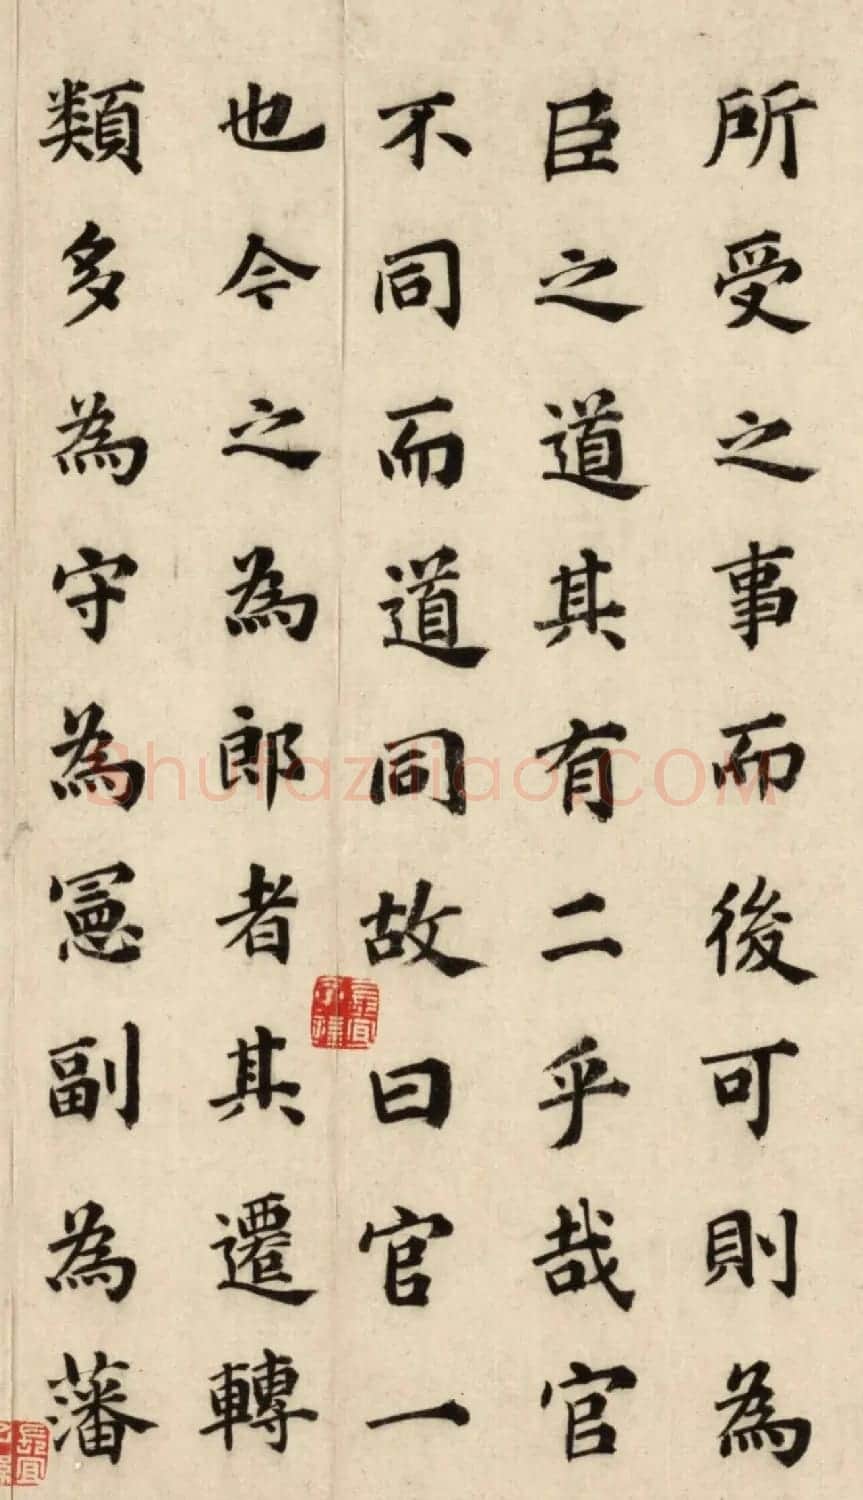 所受之事而後可則為
臣之道其有二乎哉官
不同而道同故曰官一
也今之為郎者其遷轉
類多為守為憲副為藩
Shufaziliao.COM